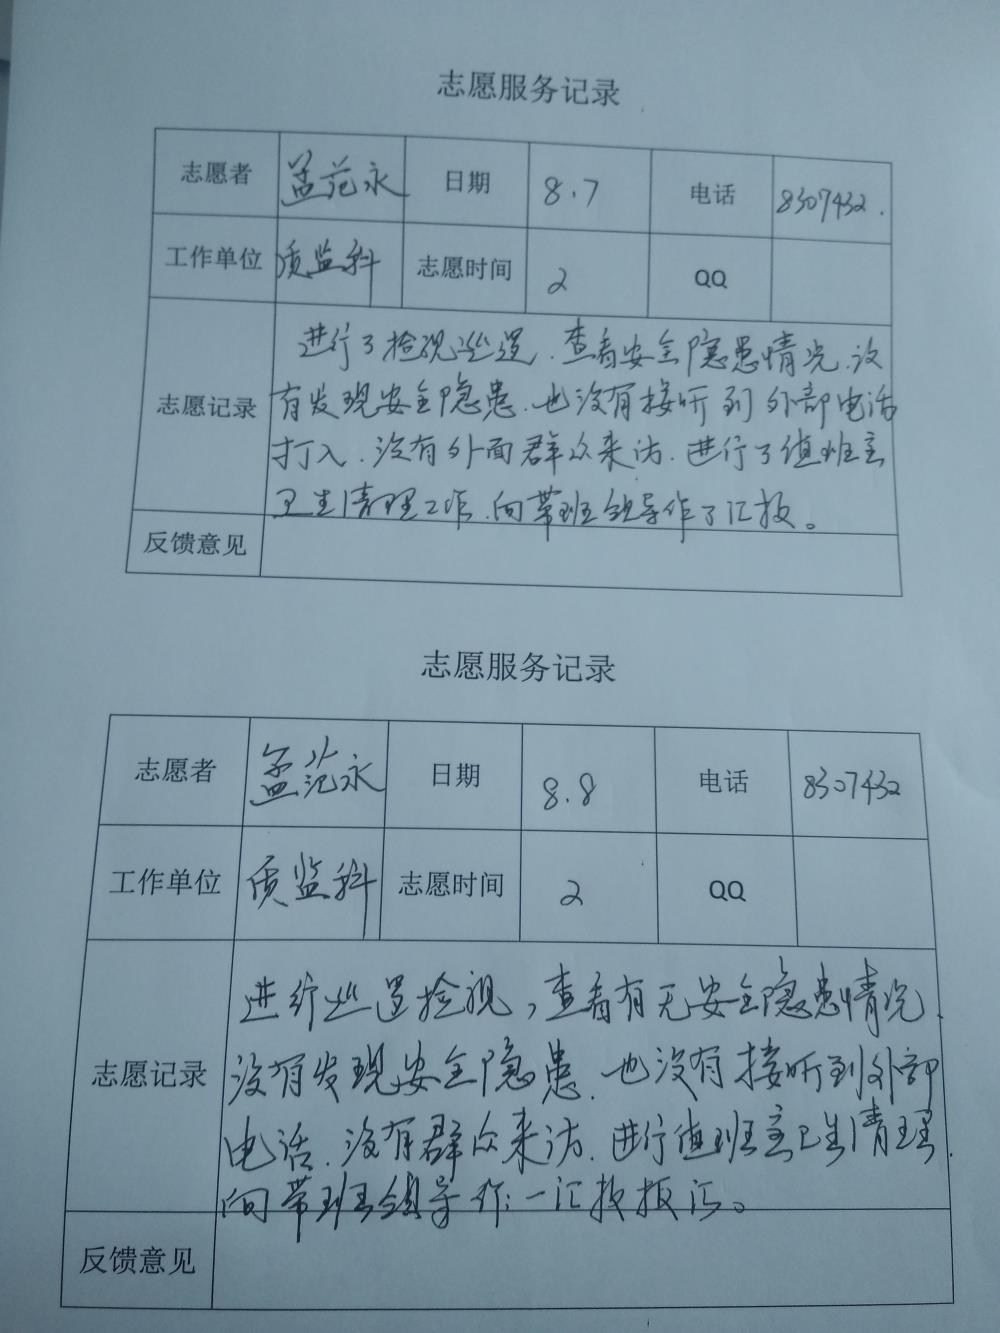 志愿服务记录
志愿者 孟范永 日期 8.7 电话 8307432.
工作单位 质监科 志愿时间 2 QQ
志愿记录
进行了检视巡逻、查看安全隐患情况、没
有发现安全隐患、也没有接听到外部电话
打入、没有外面群众来访、进行了值班室
卫生清理工作、向带班领导作了汇报。
反馈意见
志愿服务记录
志愿者 孟范永 日期 8.8 电话 8307432
工作单位 质监科 志愿时间 2 QQ
志愿记录
进行巡逻检视，查看有无安全隐患情况、
没有发现安全隐患、也没有接听到外部
电话、没有群众来访、进行值班室卫生清理、
向带班领导作一汇报
反馈意见